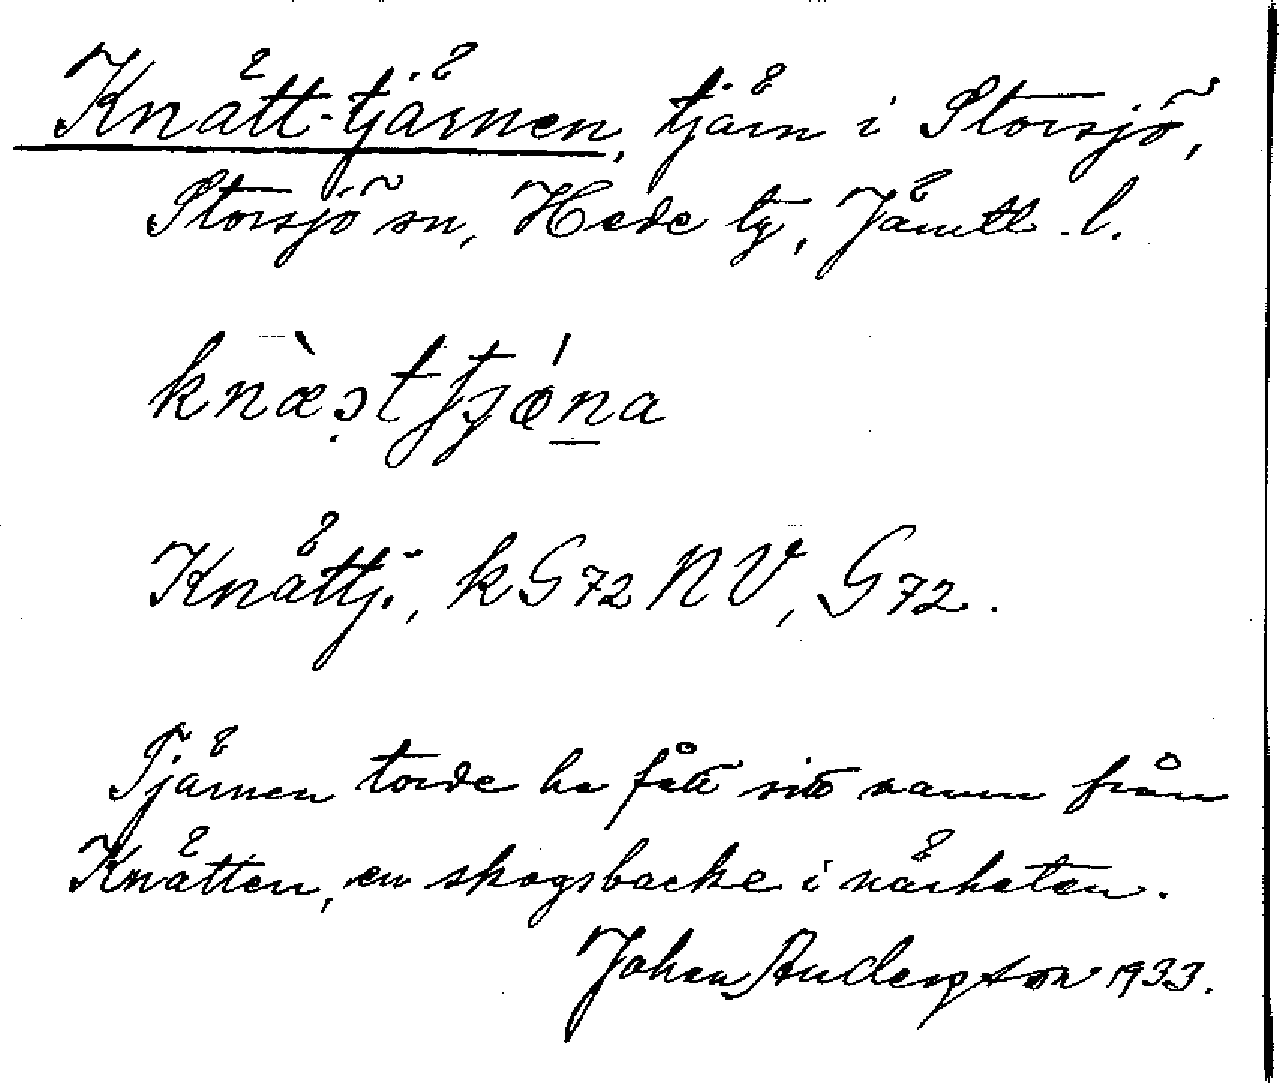 Knätt-tjärnen, tjärn i Storsjö,
Storsjö sn, Hede tg, Jämtl. l.
knæ̀ɔ̣t tjǿn̲a
Knättj:, k G72 NV, G72.
Tjärnen torde ha fått sitt namn från
Knätten, en skogsbacke i närheten.
Johan Andersson 1933.